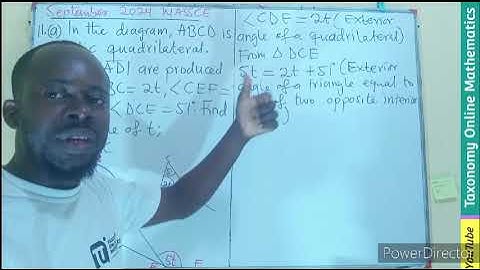 September 2024 WASSCE
11.(a) In the diagram, ABCD is
quadrilateral.
ADI are produced
BC = 2t, <CEF =
<DCE = 51°. Find
of t;
<CDE = 2t (Exterior
angle of a quadrilateral)
From △ DCE
5t = 2t + 51° (Exterior
angle of a triangle equal to
of two opposite interior
5t
E F
Taxonomy Online Mathematics
YouTube
PowerDirector